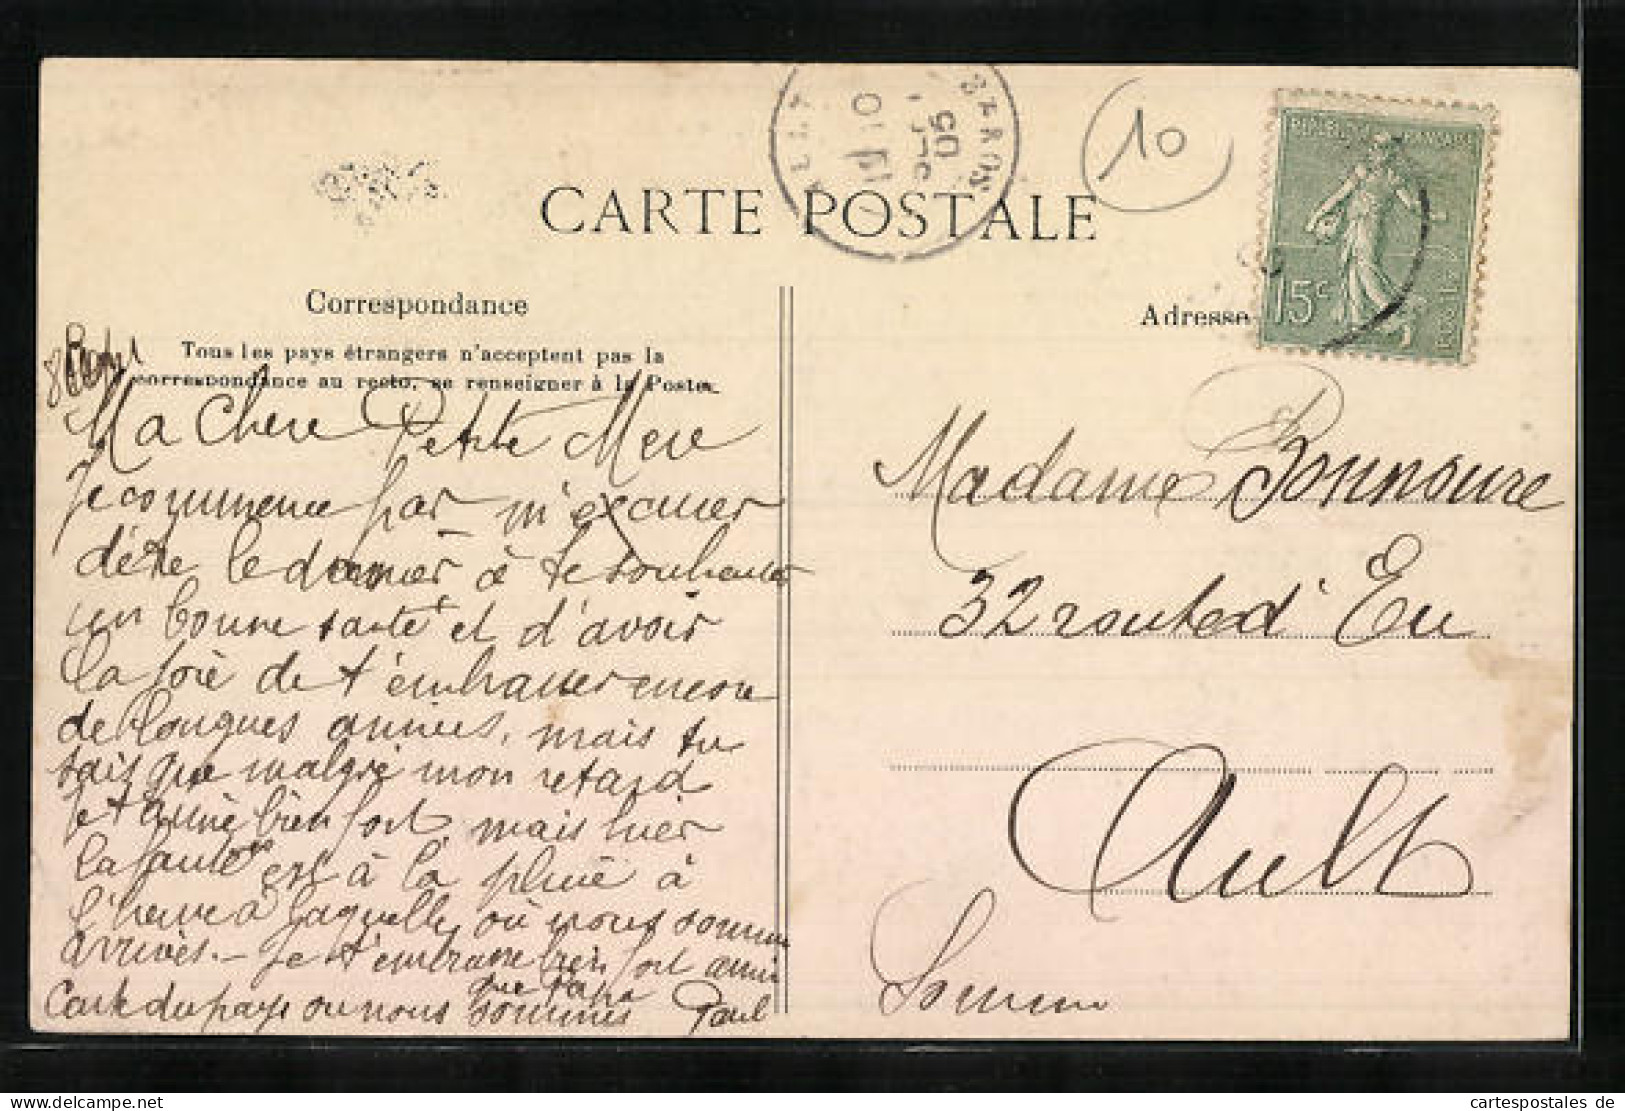 CARTE POSTALE
10
REPUBLIQUE FRANÇAISE
15c
POSTES
Correspondance
Adresse
Tous les pays étrangers n'acceptent pas la
correspondance au recto, se renseigner à la Poste.
Ma Chere Petite Mere
Je commence par m'excuser
d'être le dernier à te souhaiter
un bonne santé et d'avoir
la joie de t'embrasser encore
de longues années, mais tu
sais que malgré mon retard
je t'aime bien fort, mais hier
la faute est à la pluie à
l'heure à laquelle où nous somme
arrivés. - Je t'embrasse bien fort ainsi
que papa
Carte du pays ou nous sommes Paul
Madame Bonnoure
32 route d'Eu
Ault
Somme
cartespostales de
www.cartespostales.de